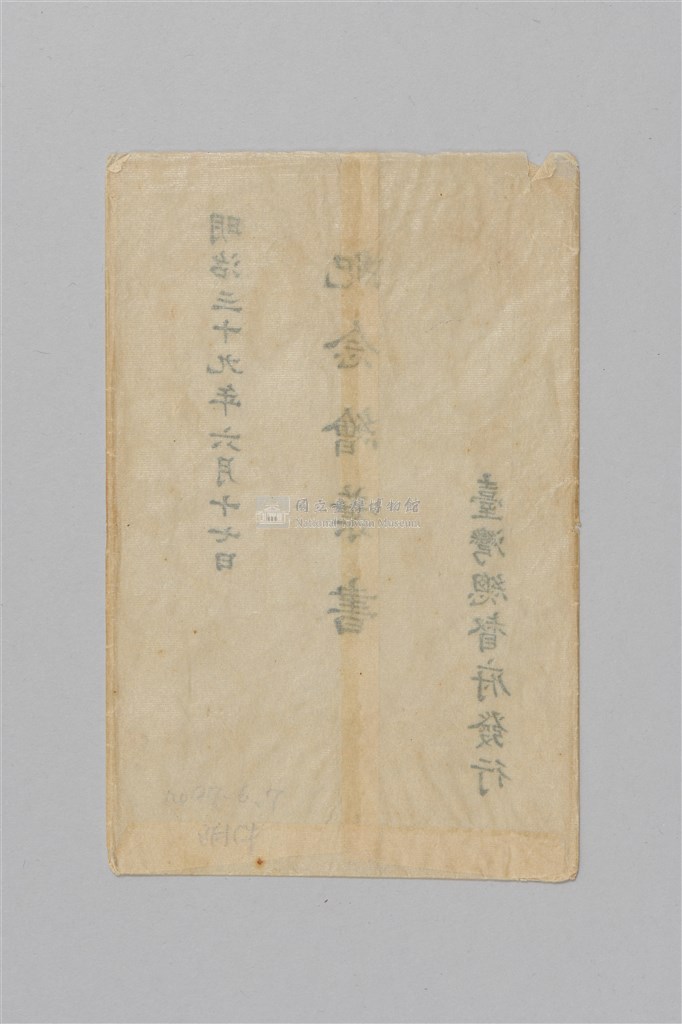 明治三十九年六月十七日
紀念繪葉書
臺灣總督府發行
國立臺灣博物館
National Taiwan Museum